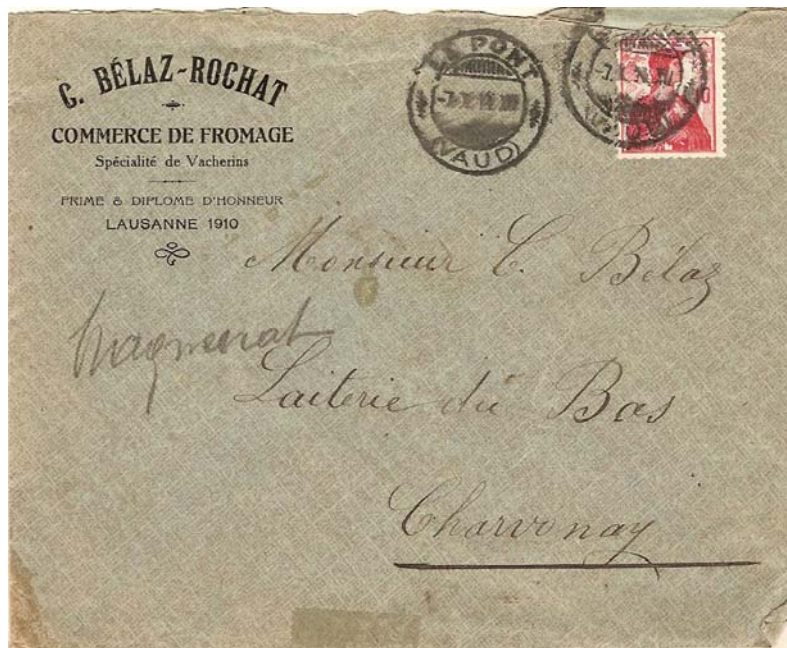 C. BÉLAZ-ROCHAT
COMMERCE DE FROMAGE
Spécialité de Vacherins
PRIME & DIPLOME D'HONNEUR
LAUSANNE 1910
LE PONT
(VAUD)
Monsieur C. Bélaz
Laiterie du Bas
Charvonay